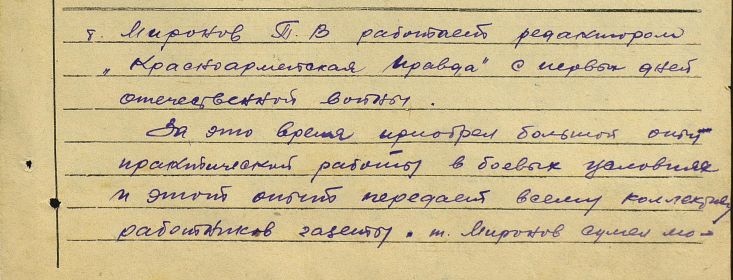 т. Миронов Т. В работает редактором
„Красноармейская правда" с первых дней
отечественной войны.
За это время приобрел большой опыт
практической работы в боевых условиях
и этот опыт передает всему коллективу
работников газеты. т. Миронов сумел мо-